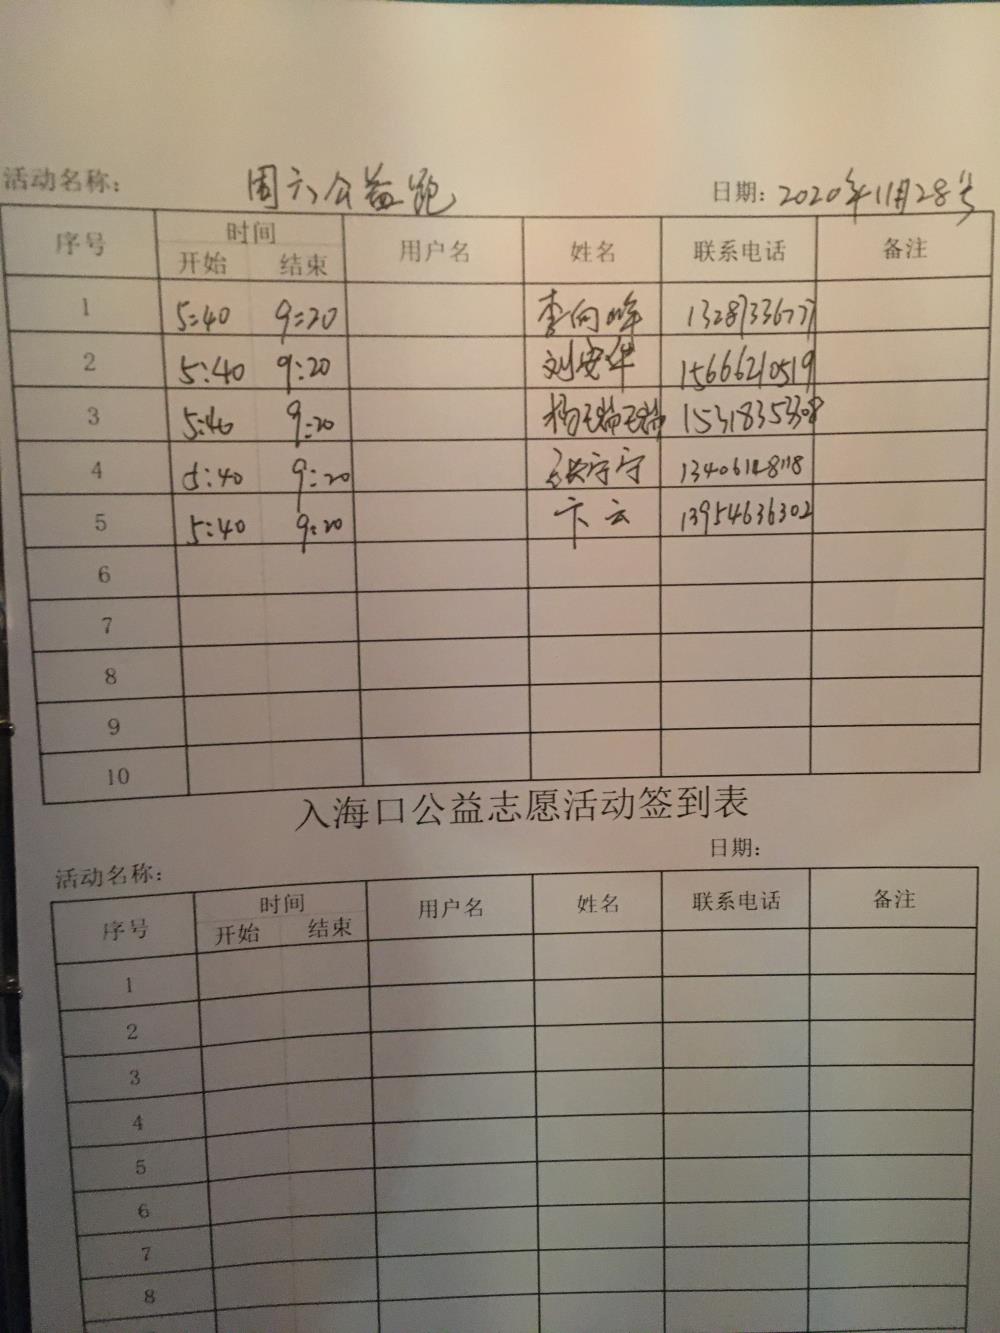 活动名称： 周六公益跑 日期：2020年11月28号
序号 时间 用户名 姓名 联系电话 备注
开始 结束
1 5:40 9:20 李向峰
2 5:40 9:20 刘安华 15666210519
3 5:40 9:20 杨瑞瑞 15318353308
4 5:40 9:20 张宁宁
5 5:40 9:20 卞云 13954636302
6
7
8
9
10
入海口公益志愿活动签到表
活动名称： 日期：
序号 时间 用户名 姓名 联系电话 备注
开始 结束
1
2
3
4
5
6
7
8